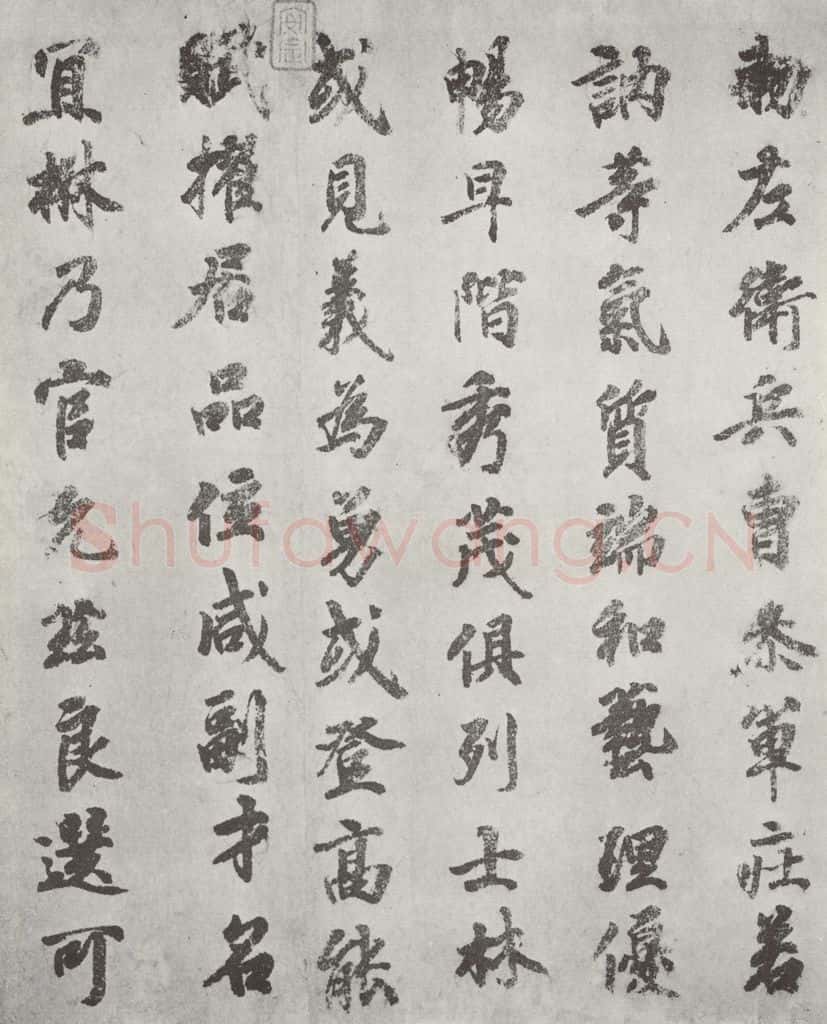 勅左衛兵曹叅軍莊若
訥等氣質端和藝理優
暢早階秀茂俱列士林
或見義為勇或登高能
賦擢居品位咸副才名
宜楙乃官允茲良選可
Shufawang.CN